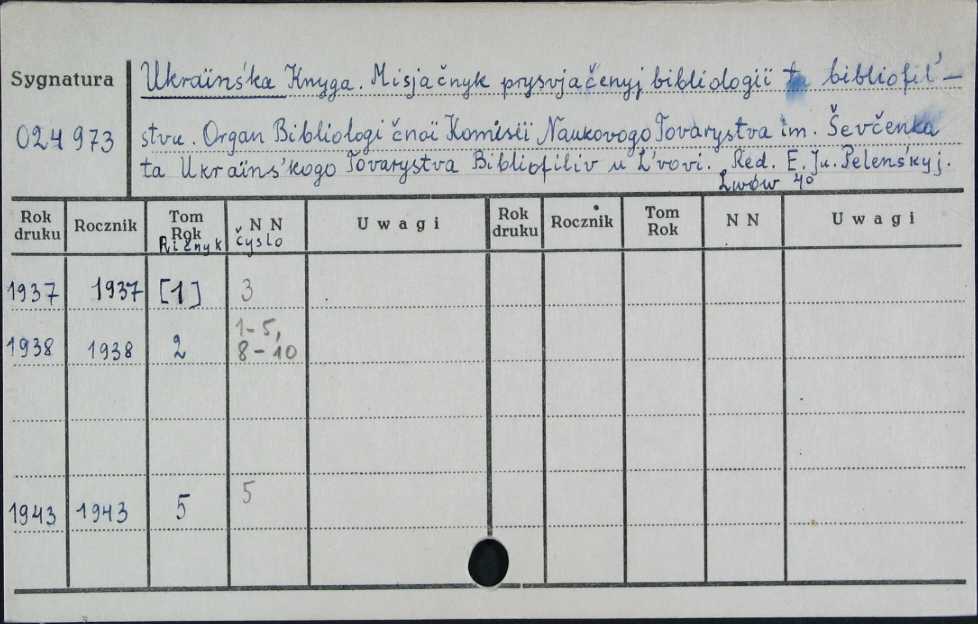 Sygnatura
024973
Ukraïns'ka Knyga. Misjačnyk prysvjačenyj bibliologiï ta bibliofil'–
stvu. Organ Bibliologičnoï Komisiï Naukovogo Tovarystva im. Ševčenka
ta Ukraïns'kogo Tovarystva Bibliofiliv u L'vovi. Red. E. Ju. Pelens'kyj.
Lwów 4°
Rok druku Rocznik Tom Rok Ričnyk N N Čyslo Uwagi Rok druku Rocznik Tom Rok N N Uwagi
1937 1937 [1] 3
1938 1938 2 1-5, 8-10
1943 1943 5 5